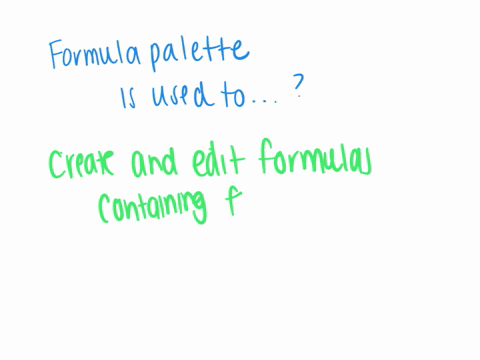 Formula palette
is used to... ?
Create and edit formulas
containing f